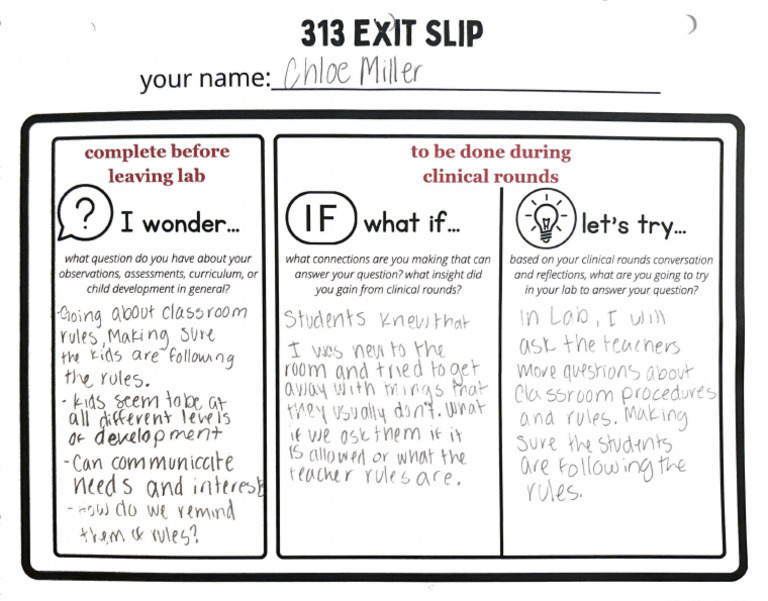 313 EXIT SLIP
your name: Chloe Miller
complete before
leaving lab
I wonder...
what question do you have about your
observations, assessments, curriculum, or
child development in general?
-Going about classroom
rules, Making sure
the kids are following
the rules.
- kids seem to be at
all different levels
of development
- Can communiccite
needs and interest
- How do we remind
them of rules?
to be done during
clinical rounds
IF what if...
what connections are you making that can
answer your question? what insight did
you gain from clinical rounds?
Students knew that
I was new to the
room and tried to get
away with things that
they usually don't. What
if we ask them if it
is allowed or what the
teacher rules are.
let's try...
based on your clinical rounds conversation
and reflections, what are you going to try
in your lab to answer your question?
In Lab, I will
ask the teachers
more questions about
Classroom procedures
and rules. Making
sure the students
are following the
rules.